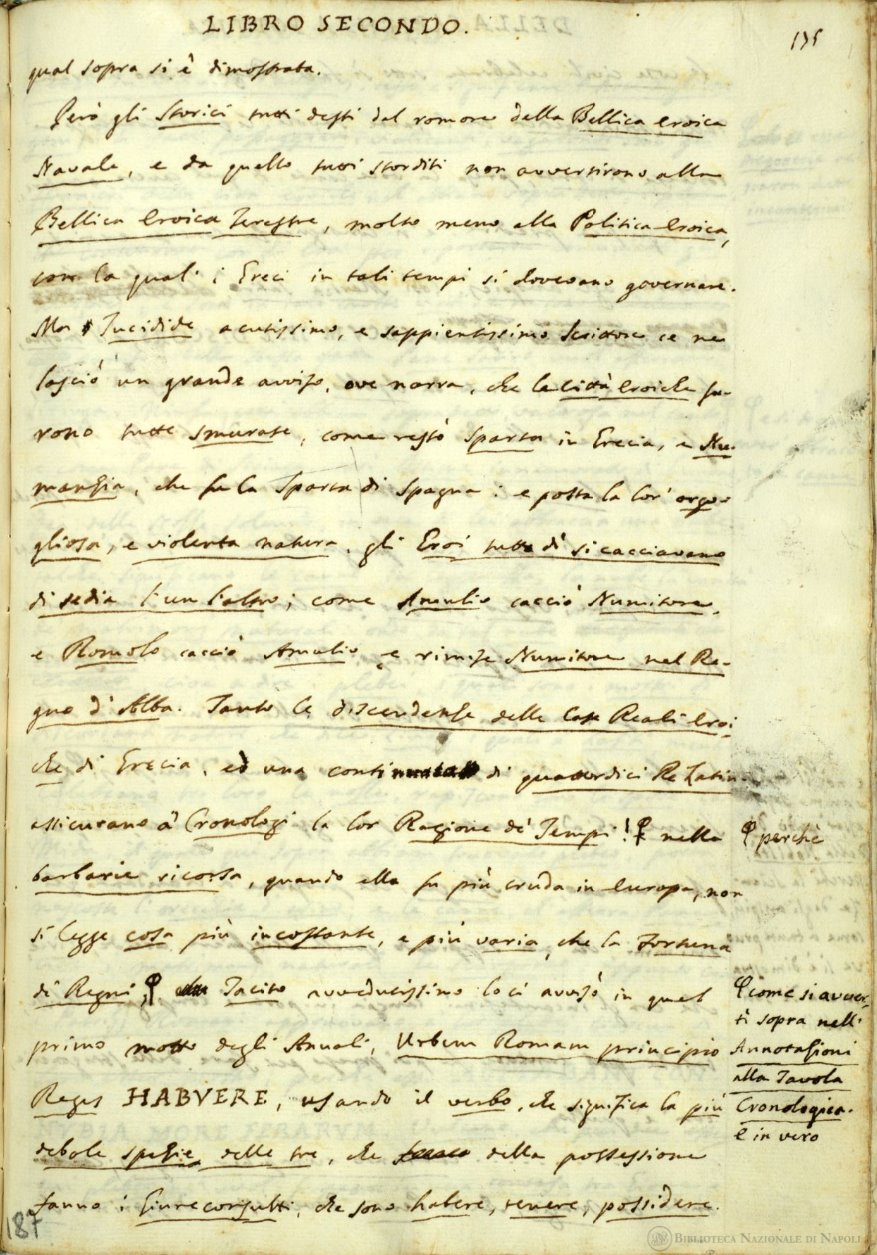 LIBRO SECONDO.
qual sopra si è dimostrata.
Però gli Storici tutti desti dal romore della Bellica eroica
Navale, e da quello tutti storditi non avvertirono alla
Bellica Eroica Terestre, molto meno alla Politica Eroica,
con la quale i Greci in tali tempi si dovevano governare.
Ma Tucidide acutissimo, e sappientissimo Scrittore ce ne
lasciò un grande avviso, ove narra, che le città eroiche fu-
rono tutte smurate, come restò Sparta in Grecia, e Nu-
manzia, che fu la Sparta di Spagna: e posta la lor' orgo-
gliosa, e violenta natura, gli Eroi tutto dì si cacciavano
di sedia l'un l'altro; come Amulio cacciò Numitore,
e Romolo cacciò Amulio, e rimise Numitore nel Re-
gno d'Alba. Tanto le discendenze delle Case Reali Eroi-
che di Grecia, ed una continuata di quattordici Re Latini
assicurano a' Cronologi la lor Ragione de' Tempi!
nella
perchè
barbarie ricorsa, quando ella fu più cruda in Europa, non
si legge cosa più incostante, e più varia, che la Fortuna
di Regni,
come si avver-
tì sopra nell'
Annotazioni
alla Tavola
Cronologica.
E in vero
Tacito avvedutissimo lo ci avvisò in quel
primo motto degli Annali, Urbem Romam principio
Reges HABVERE, usando il verbo, che significa la più
debole spezie delle tre, che della possessione
fanno i Giureconsulti, che sono habere, tenere, possidere.
187
BIBLIOTECA NAZIONALE DI NAPOLI